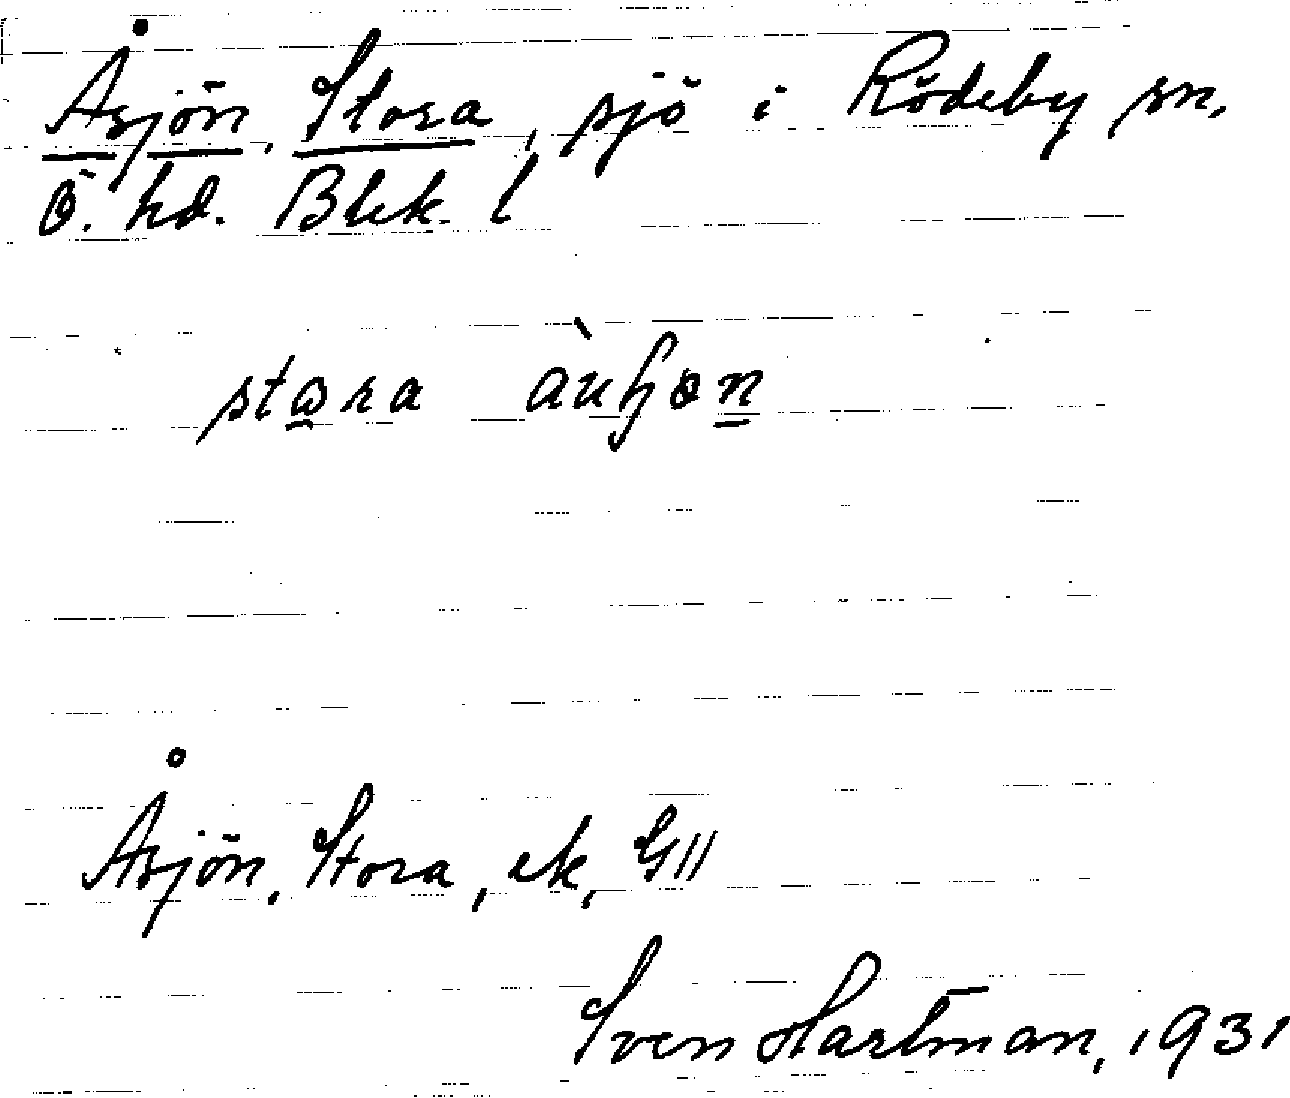 Åsjön, Stora, sjö i Rödeby sn.
Ö. hd. Blek. l
stora
Åsjön, Stora, ek, G11
Sven Hartman, 1931